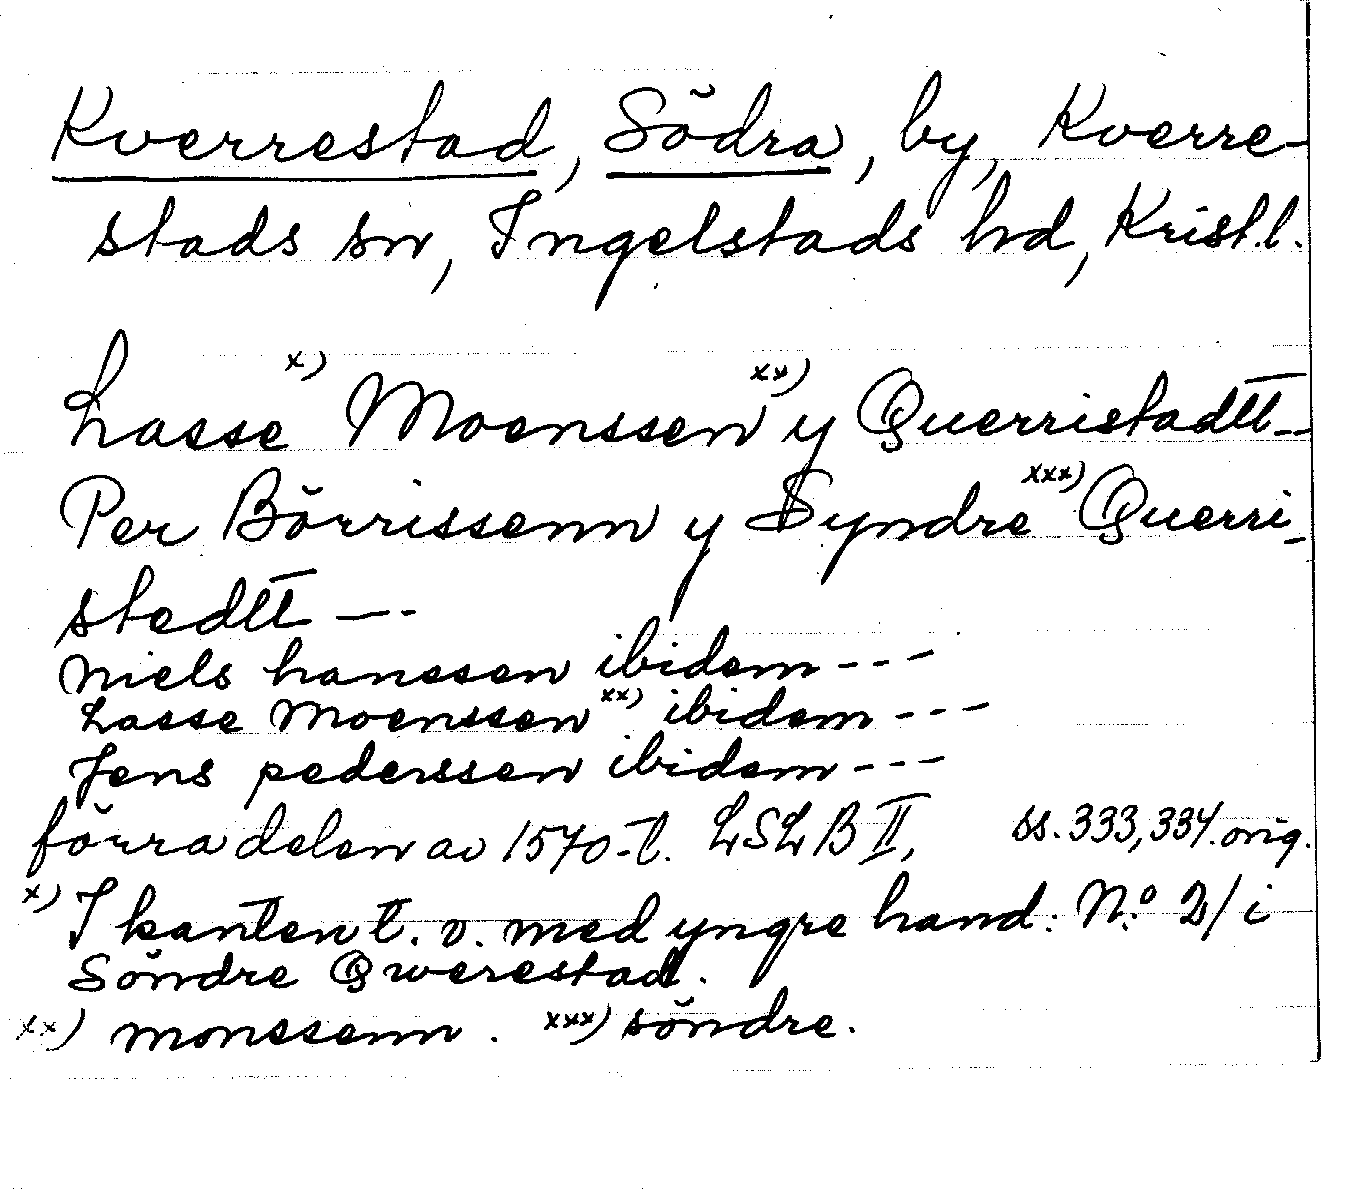 Kverrestad, Södra, by, Kverre-
stads sn, Ingelstads hd, Krist.l.
Lasse x) Moenssen xx) y Querristadtt --
Per Börrissenn y Syndre xxx) Querri-
stedtt ---
Niels hanssen ibidem ---
Lasse Moenssen xx) ibidem ---
Jens pederssen ibidem ---
förra delen av 1570-t. LSLB II, ss. 333, 334. orig.
x) I kanten t. v. med yngre hand: N.º 2/ i
Söndre Qwerestad.
xx) monssenn. xxx) söndre.